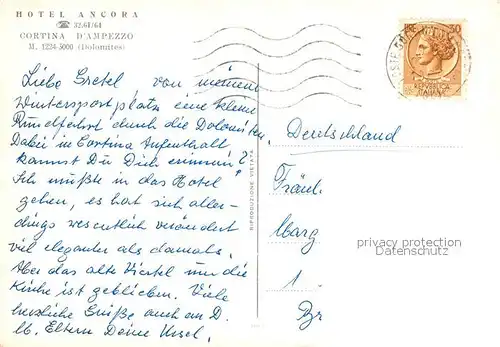 HOTEL ANCORA
☎ 32.61/61
CORTINA D'AMPEZZO
M. 1224-3000 (Dolomites)
Liebe Gretel von meinem
Wintersportplatz eine kleine
Rundfahrt durch die Dolomiten.
Dabei in Cortina Aufenthalt
kannst Du Dich erinnern?
Ich mußte in das Hotel
gehen, es hat sich aller-
dings wesentlich verändert
viel eleganter als damals.
Aber das alte Viertel um die
Kirche ist geblieben. Viele
herzliche Grüße auch an D.
lb. Eltern Deine Ursel.
RIPRODUZIONE VIETATA
Deutschland
Fräul
Marg
1
Br
privacy protection
Datenschutz